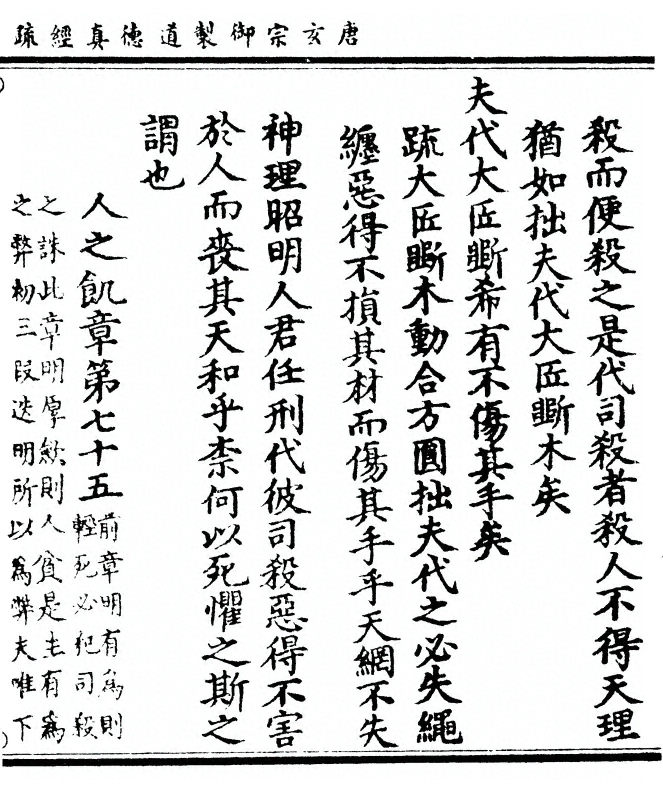 唐玄宗御製道德真經疏
殺而便殺之是代司殺者殺人不得天理
猶如拙夫代大匠斲木矣
夫代大匠斲希有不傷其手矣
疏大匠斲木動合方圓拙夫代之必失繩
纏惡得不損其材而傷其手乎天網不失
神理昭明人君任刑代彼司殺惡得不害
於人而喪其天和乎柰何以死懼之斯之
謂也
人之飢章第七十五
前章明有為則
輕死必犯司殺
之誅此章明厚斂則人貧是主有為
之弊初三段迭明所以為弊夫唯下